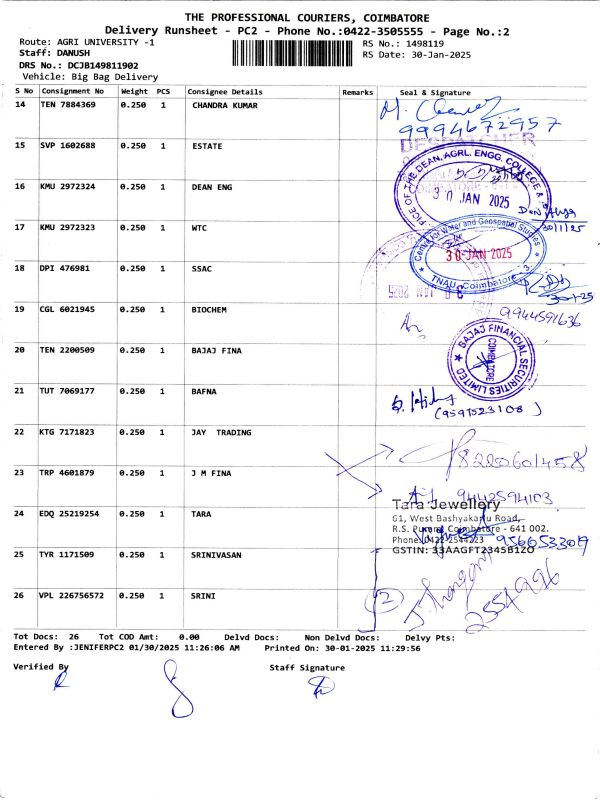 THE PROFESSIONAL COURIERS, COIMBATORE
Delivery Runsheet - PC2 - Phone No.:0422-3505555 - Page No.:2
Route: AGRI UNIVERSITY -1
RS No.: 1498119
Staff: DANUSH
RS Date: 30-Jan-2025
DRS No.: DCJB149811902
Vehicle: Big Bag Delivery
S No Consignment No Weight PCS Consignee Details Remarks Seal & Signature
14 TEN 7884369 0.250 1 CHANDRA KUMAR
9994672957
DESPATCHER
15 SVP 1602688 0.250 1 ESTATE
OFFICE OF THE DEAN, AGRL. ENGG. COLLEGE &
16 KMU 2972324 0.250 1 DEAN ENG
30 JAN 2025
17 KMU 2972323 0.250 1 WTC
30/1/25
Centre for Water and Geospatial Studies
30-JAN 2025
TNAU, Coimbatore - 3.
18 DPI 476981 0.250 1 SSAC
30 JAN 2025
30-1-25
19 CGL 6021945 0.250 1 BIOCHEM
9944591636
20 TEN 2200509 0.250 1 BAJAJ FINA
BAJAJ FINANCIAL SECURITIES LIMITED
COIMBATORE
21 TUT 7069177 0.250 1 BAFNA
(9597523108)
22 KTG 7171823 0.250 1 JAY TRADING
8220601458
23 TRP 4601879 0.250 1 J M FINA
9442594103
24 EDQ 25219254 0.250 1 TARA
Tara Jewellery
61, West Bashyakarlu Road,
R.S. Puram, Coimbatore - 641 002.
Phone: 0422-2544223
9566533019
GSTIN: 33AAGFT2345B1ZO
25 TYR 1171509 0.250 1 SRINIVASAN
26 VPL 226756572 0.250 1 SRINI
2
2554996
Tot Docs: 26 Tot COD Amt: 0.00 Delvd Docs: Non Delvd Docs: Delvy Pts:
Entered By :JENIFERPC2 01/30/2025 11:26:06 AM Printed On: 30-01-2025 11:29:56
Verified By
Staff Signature